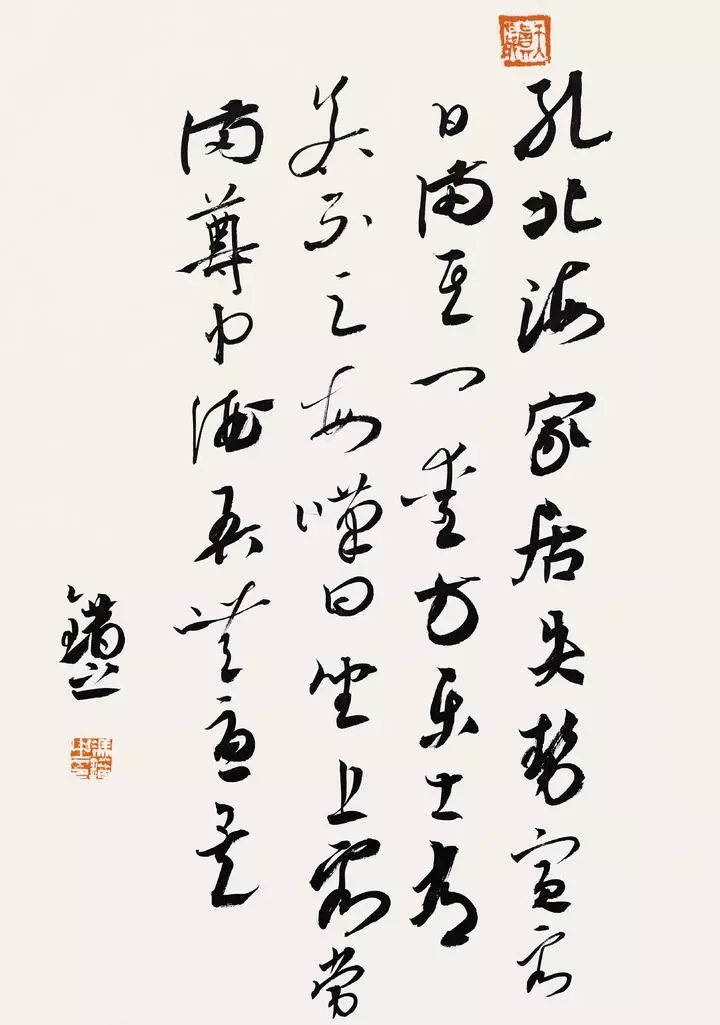 孔北海家居失勢賓客
日滿其門愛才樂士
若不足每嘆曰坐上客常
滿尊中酒吾無憂矣